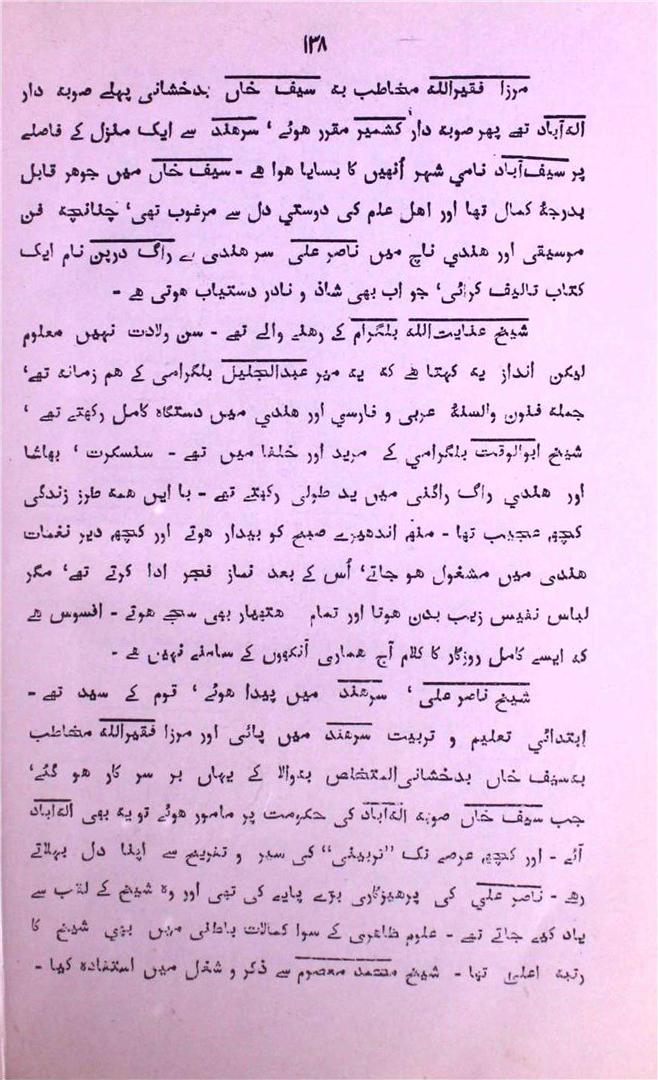 ۱۳۸
مرزا فقیراللہ مخاطب بہ سیف خاں بدخشانی پہلے صوبہ دار
الہ‌آباد تھے پھر صوبہ دار کشمیر مقرر ہوئے ' سرہند سے ایک منزل کے فاصلے
پر سیف‌آباد نامی شہر اُنھیں کا بسایا ہوا ہے - سیف خاں میں جوہر قابل
بدرجۂ کمال تھا اور اہل علم کی دوستی دل سے مرغوب تھی' چنانچہ فن
موسیقی اور ہندی ناچ میں ناصر علی سرہندی سے راگ درپن نام ایک
کتاب تالیف کرائی' جو اب بھی شاذ و نادر دستیاب ہوتی ہے -
شیخ عنایت‌اللہ بلگرام کے رہنے والے تھے - سن ولادت نہیں معلوم
لیکن انداز یہ کہتا ہے کہ یہ میر عبدالجلیل بلگرامی کے ہم زمانہ تھے'
جملہ فنون والسنۂ عربی و فارسی اور ہندی میں دستگاہ کامل رکھتے تھے '
شیخ ابوالوقت بلگرامی کے مرید اور خلفا میں تھے - سنسکرت ' بھاشا
اور ہندی راگ راگنی میں ید طولی رکھتے تھے - با ایں ہمہ طرز زندگی
کچھ عجیب تھا - منھ اندھیرے صبح کو بیدار ہوتے اور کچھ دیر نغمات
ہندی میں مشغول ہو جاتے' اُس کے بعد نماز فجر ادا کرتے تھے' مگر
لباس نفیس زیب بدن ہوتا اور تمام ہتھیار بھی سجے ہوتے - افسوس ہے
کہ ایسے کامل روزگار کا کلام آج ہماری آنکھوں کے سامنے نہیں ہے -
شیخ ناصر علی ' سرہند میں پیدا ہوئے ' قوم کے سید تھے -
ابتدائی تعلیم و تربیت سرہند میں پائی اور مرزا فقیراللہ مخاطب
بہ‌سیف خاں بدخشانی‌المتخلص بہ‌والا کے یہاں بر سر کار ہو گئے'
جب سیف خاں صوبہ الہ‌آباد کی حکومت پر مامور ہوئے تو یہ بھی الہ‌آباد
آئے - اور کچھ عرصے تک ”تربینی“ کی سیر و تفریح سے اپنا دل بہلاتے
رہے - ناصر علی کی پرہیزگاری بڑے پایے کی تھی اور وہ شیخ کے لقب سے
یاد کیے جاتے تھے - علوم ظاہری کے سوا کمالات باطنی میں بھی شیخ کا
رتبہ اعلیٰ تھا - شیخ محمد معصوم سے ذکر و شغل میں استفادہ کیا -